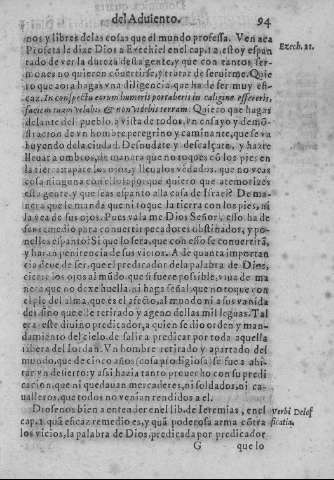 del Aduiento. 94
nos y libres de las cosas que el mundo professa. Ven aca
Profeta le dize Dios a Ezechiel en el cap. 12. estoy espan
tado de ver la dureza desta gente, y que con tantos ser-
mones no quieren cõuertirse, y tratar de seruirme. Quie
ro que aora hagas vna diligencia que ha de ser muy efi-
caz. In conspectu eorum humeris portaberis in caligine effereris,
faciem tuam velabis & non videbis terram. Quiero que hagas
delante del pueblo a vista de todos vn ensayo y demõ-
stracion de vn hombre peregrino y caminante, que se va
huyendo de la ciudad. Desnudate y descalçate, y hazte
lleuar a ombros, de manera que no toques cõ los pies en
la tierra tapate los ojos, y lleualos vẽdados, que no veas
cosa ninguna con ellos, porque quiero que atemorizes
esta gente, y que seas espanto a la casa de Israel. De ma-
nera que le manda que ni toque la tierra con los pies, ni
la vea de sus ojos. Pues valame Dios Señor, esso ha de
ser remedio para conuertir pecadores obstinados, y po-
nelles espanto? Si que lo sera, que con esso se conuertirã,
y haran penitencia de sus vicios. A de quanta importan
cia deue de ser, que el predicador de la palabra de Dios,
cierre los ojos al mũdo, que si fuere possible, viua de ma
nera que no dexe huella, ni haga señal, que no toque con
el pie del alma, que es el afecto, al mundo ni a sus vanida
des sino que este retirado y ageno dellas mil leguas. Tal
era este diuino predicador, a quien se dio orden y man-
damiento del cielo, de salir a predicar por toda aquella
ribera del Iordan. Vn hombre retirado y apartado del
mundo, que de cinco años (cosa prodigiosa) se fue a abi-
tar vn desierto: y assi hazia tanto prouecho con su predi
cacion, que ni quedauan mercaderes, ni soldados, ni ca-
ualleros, que todos no venian rendidos a el.
Dionos bien a entender en el lib. de Ieremias, en el
cap. 1. quã eficaz remedio es, y quã poderosa arma cõtra
los vicios, la palabra de Dios, predicada por predicador
G que lo
Ezech. 12.
Verbi Dei ef
ficatia.